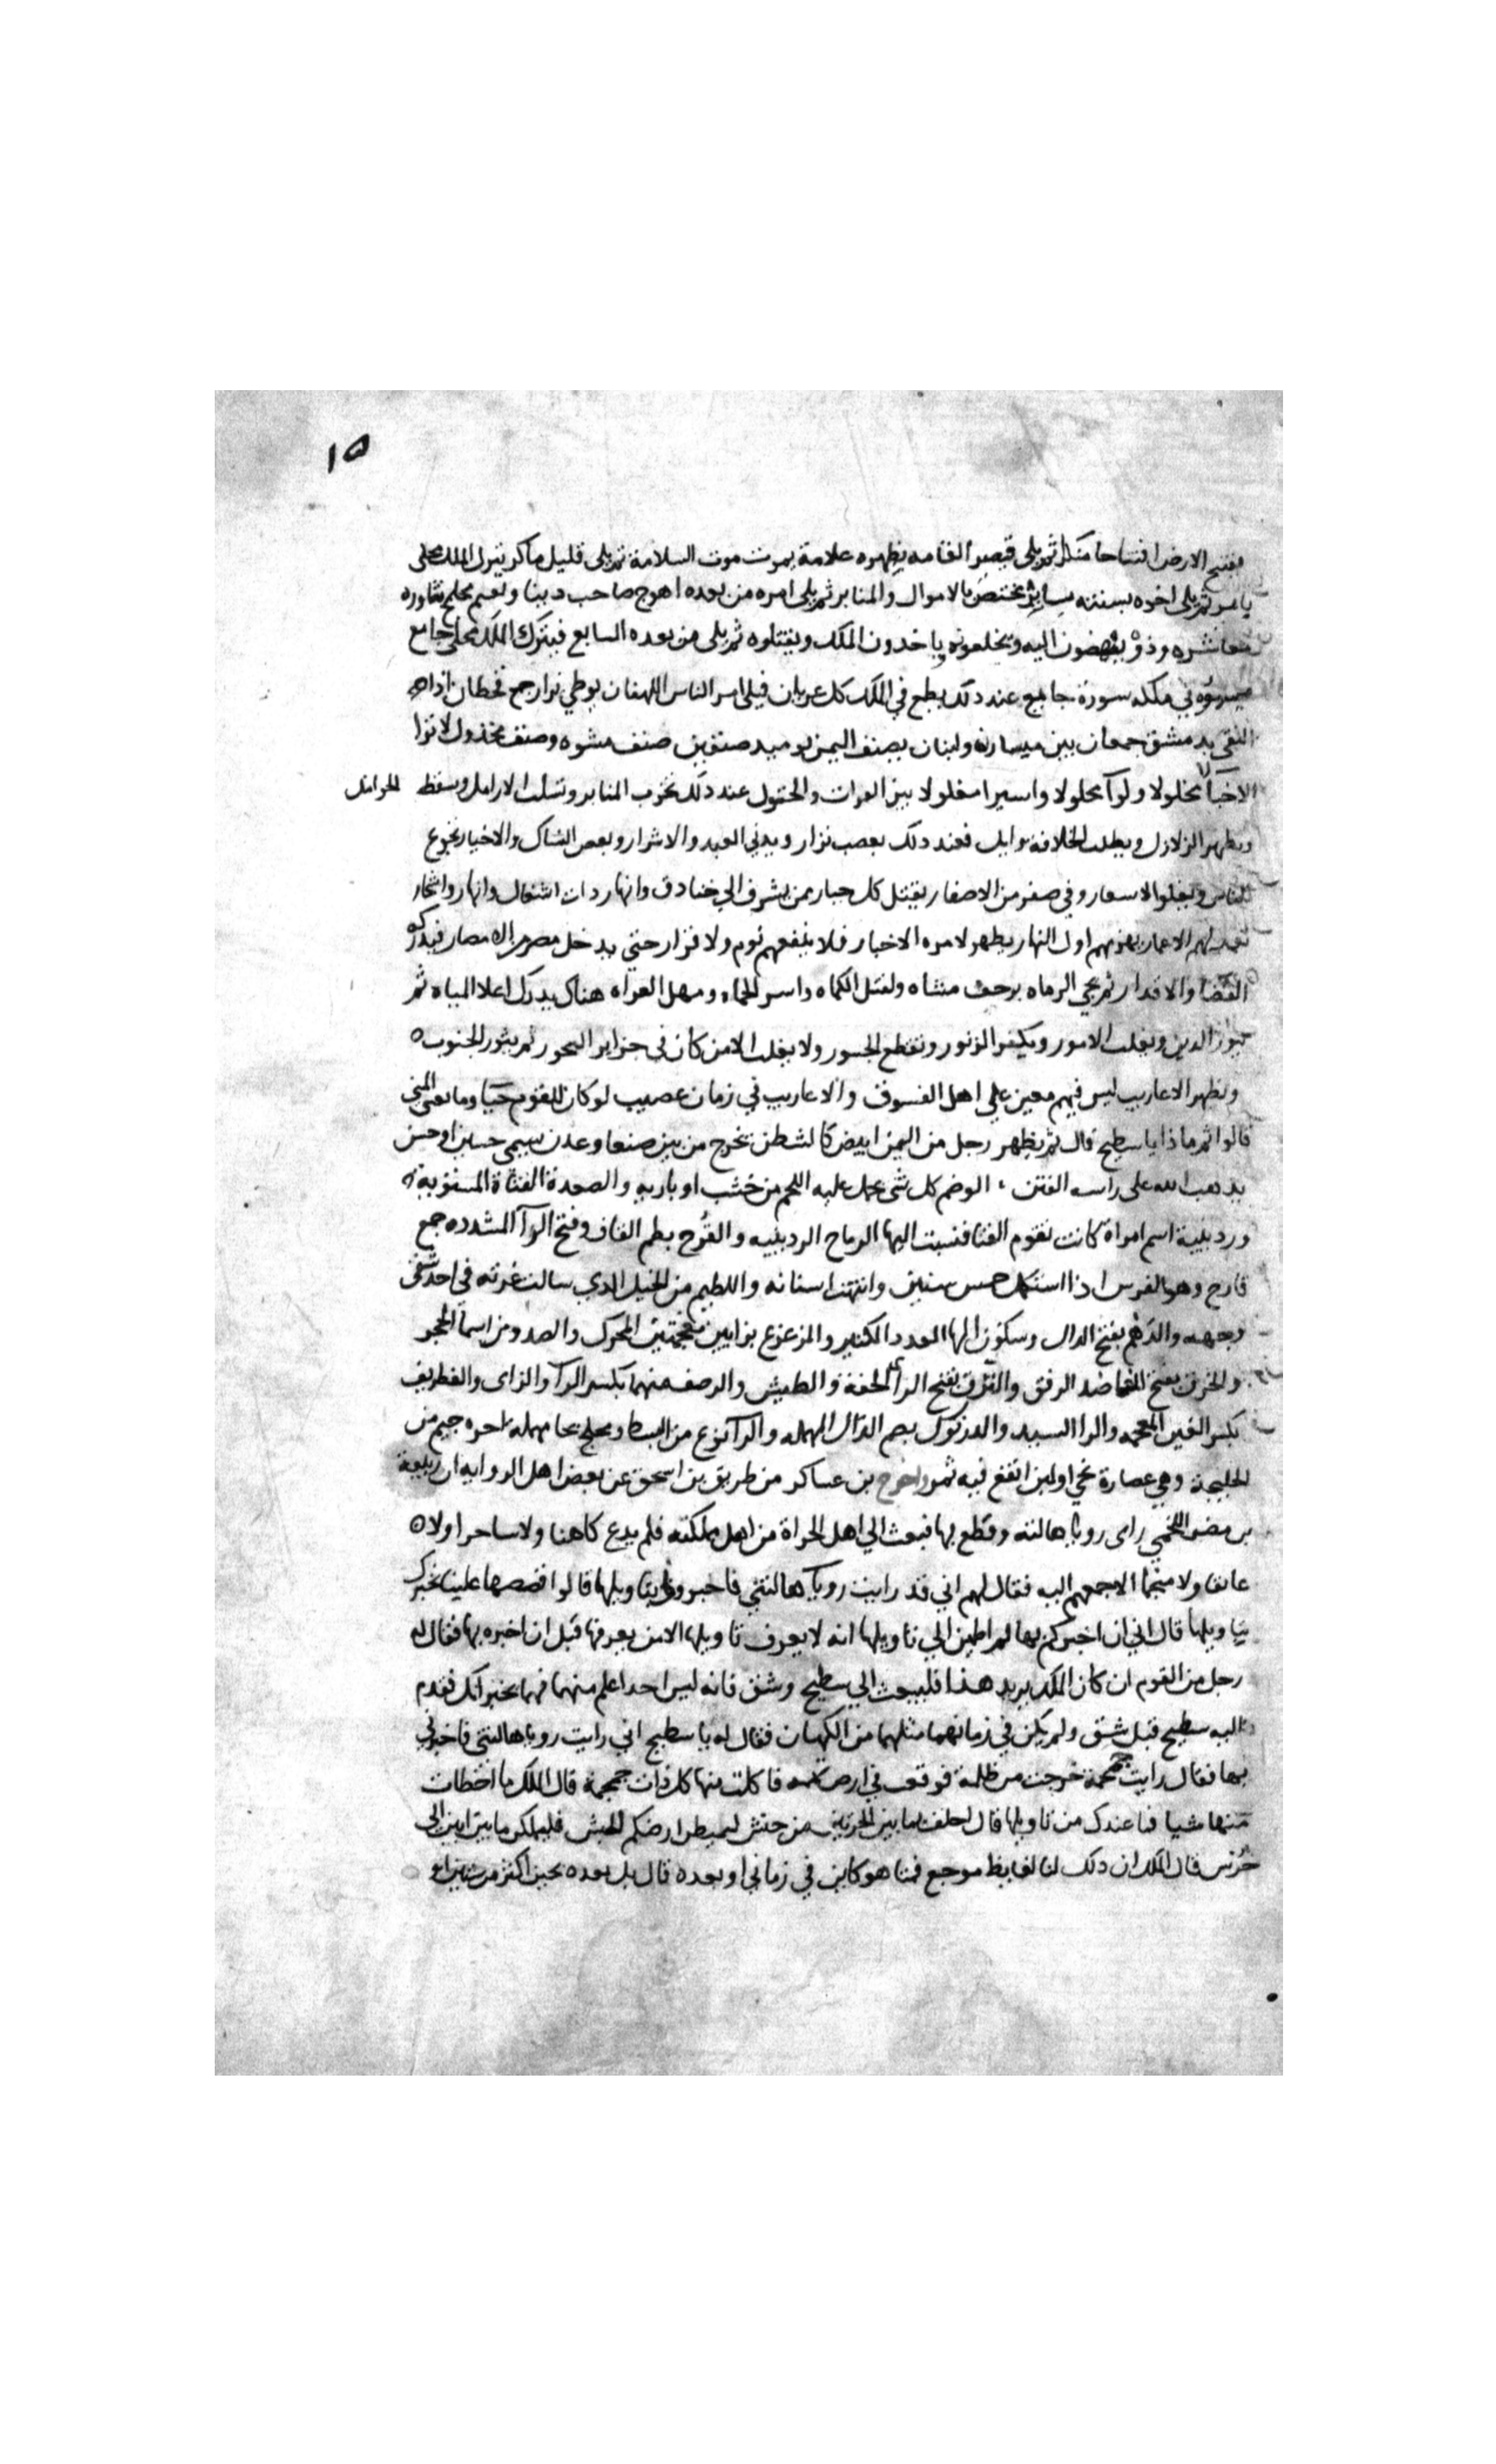 ١٥
فيفتح الارض افتتاحا منكرا ثم يلى قصير القامه بظهره علامة يموت موت السلامة ثم يلى قليل ماكر يترك الملك محلى
باير ثم يلى اخوه بسنته ساير يختص بالاموال والمنابر ثم يلى امره من بعده اهوج صاحب دينا ونعيم مخلج يشاوره
معاشره وذووه ينهضون اليه ويخلعونه ياخدون الملك ويقتلوه ثم يلى من بعده السابع فيترك الملك محلى جامع
بنوه في ملكه سورة جامع عند ذلك يطمع في الملك كل عريان فيلى امر الناس اللهفان يوطي نزار جمع قحطان اذا
التقى بدمشق جمعان بين ميسان ولبنان يصنف اليمن يوميد صنفين صنف مشوه وصنف مخذول لا ترا
الاخبا مخلولا ولوآ محلولا واسيرا مغلولا بين الفرات والخيول عند ذلك تخرب المنابر وتسلب الارامل وسقط الحوامل
وتظهر الزلازل ويطلب الخلافة وايل فعند ذلك يغضب نزار ويدني العبيد والاشرار ويقصى النساك والاخيار تجوع
الناس وتغلو الاسعار وفي صفر من الاصفار يقتل كل جبار ثم يشرف الي خنادق وانها ردات اشعال وانهار واشجار
يعمد لهم الاغمار يهزمهم اول النهار يظهر لامره الاخبار فلا ينفعهم نوم ولا قرار حتى يدخل مصر من الامصار فيدركه
القضا والاقدار ثم يجي الرماه بزحف مشاه ولقتل الكماه واسر الحماه ومهل الغواه هناك يدرك اعلا المياه ثم
يبور الدين وتقلب الامور ويكفر الزبور وتقطع الجسور ولا يفلت الا من كان في جزاير البحور ثم يثور الجنوب ه
وتظهر الاعاريب ليس فيهم معين علي اهل الفسوق والاعاريب في زمان عصيب لو كان للقوم حيا وما تغني المنى
قالوا ثم ماذا يا سطيح قال ثم يظهر رجل من اليمن ابيض كالشطن يخرج من بين صنعا وعدن يسمى حسين او حسن
يدهب الله على راسه الفتن ، الوضم كل شى يحمل عليه اللحم من خشب او باريه والصعدة القناة المستويه ه
وردينة اسم امراة كانت تقوم القنا فنسبت اليها الرماح الردينيه والقُرح بضم القاف وفتح الرآ المشدده جمع
قارح وهو الفرس اذا استكمل خمس سنين وانتهت اسنانه واللطيم من الخيل الدي سالت غرته في احد شقى
وجهه والدهم بفتح الدال وسكون الها العدد الكثير والمزعزع بزايين معجمتين المحرك والصد ومن اسما الحجر
والخرق بفتح الخا ضد الرفق والنزق بفتح الزاي الخفة والطيش والوصف منهما بكسر الرآ والزاى والغطريف
بكسر الغين المعجمه والرا السيد والدرنوك بضم الدال المهمله والرآ نوع من البسط ومخلج بخا مهمله اخره جيم من
الخليجة وهي عصارة نحي او لبن انقع فيه تمر واخرج بن عساكر من طريق بن اسحق عن بعض اهل الروايه ان ربيعة
بن مضر اللخمي راى رويا هالته وفظع بها فبعث الي اهل الحراة من اهل مملكته فلم يدع كاهنا ولا ساحرا ولا ه
عايفا ولا منجما الا جمعهم اليه فقال لهم اني قد رايت رويآ هالتني فاخبروني بتاويلها قالوا اقصصها علينا نخبرك
بتاويلها قال اني ان اخبرتكم بها لم اطمين الي تاويلها انه لا يعرف تاويلها الا من يعرفها قبل ان اخبره بها فقال له
رجل من القوم ان كان الملك يريد هذا فليبعث الي سطيح وشق فانه ليس احدا اعلم منهما فهما يخبرانك فقدم
اليه سطيح قبل شق ولم يكن في زمانهما مثلهما من الكهان فقال له يا سطيح اني رايت رويا هالتني فاخبرني
بها فقال رايت جمجمة خرجت من ظلمة فوقعت في ارض تهمه فاكلت منها كل ذات جمجمة قال الملك ما اخطات
منها شيا فما عندك من تاويلها قال احلف لما بين الحرتين من حنش ليهبطن ارضكم الحبش فليملكن ما بين ابين الى
جُرَش قال الملك ان دلك لنا لغايظ موجع فمتا هو كاين في زماني او بعده قال بل بعده بحين اكثر من ستين او